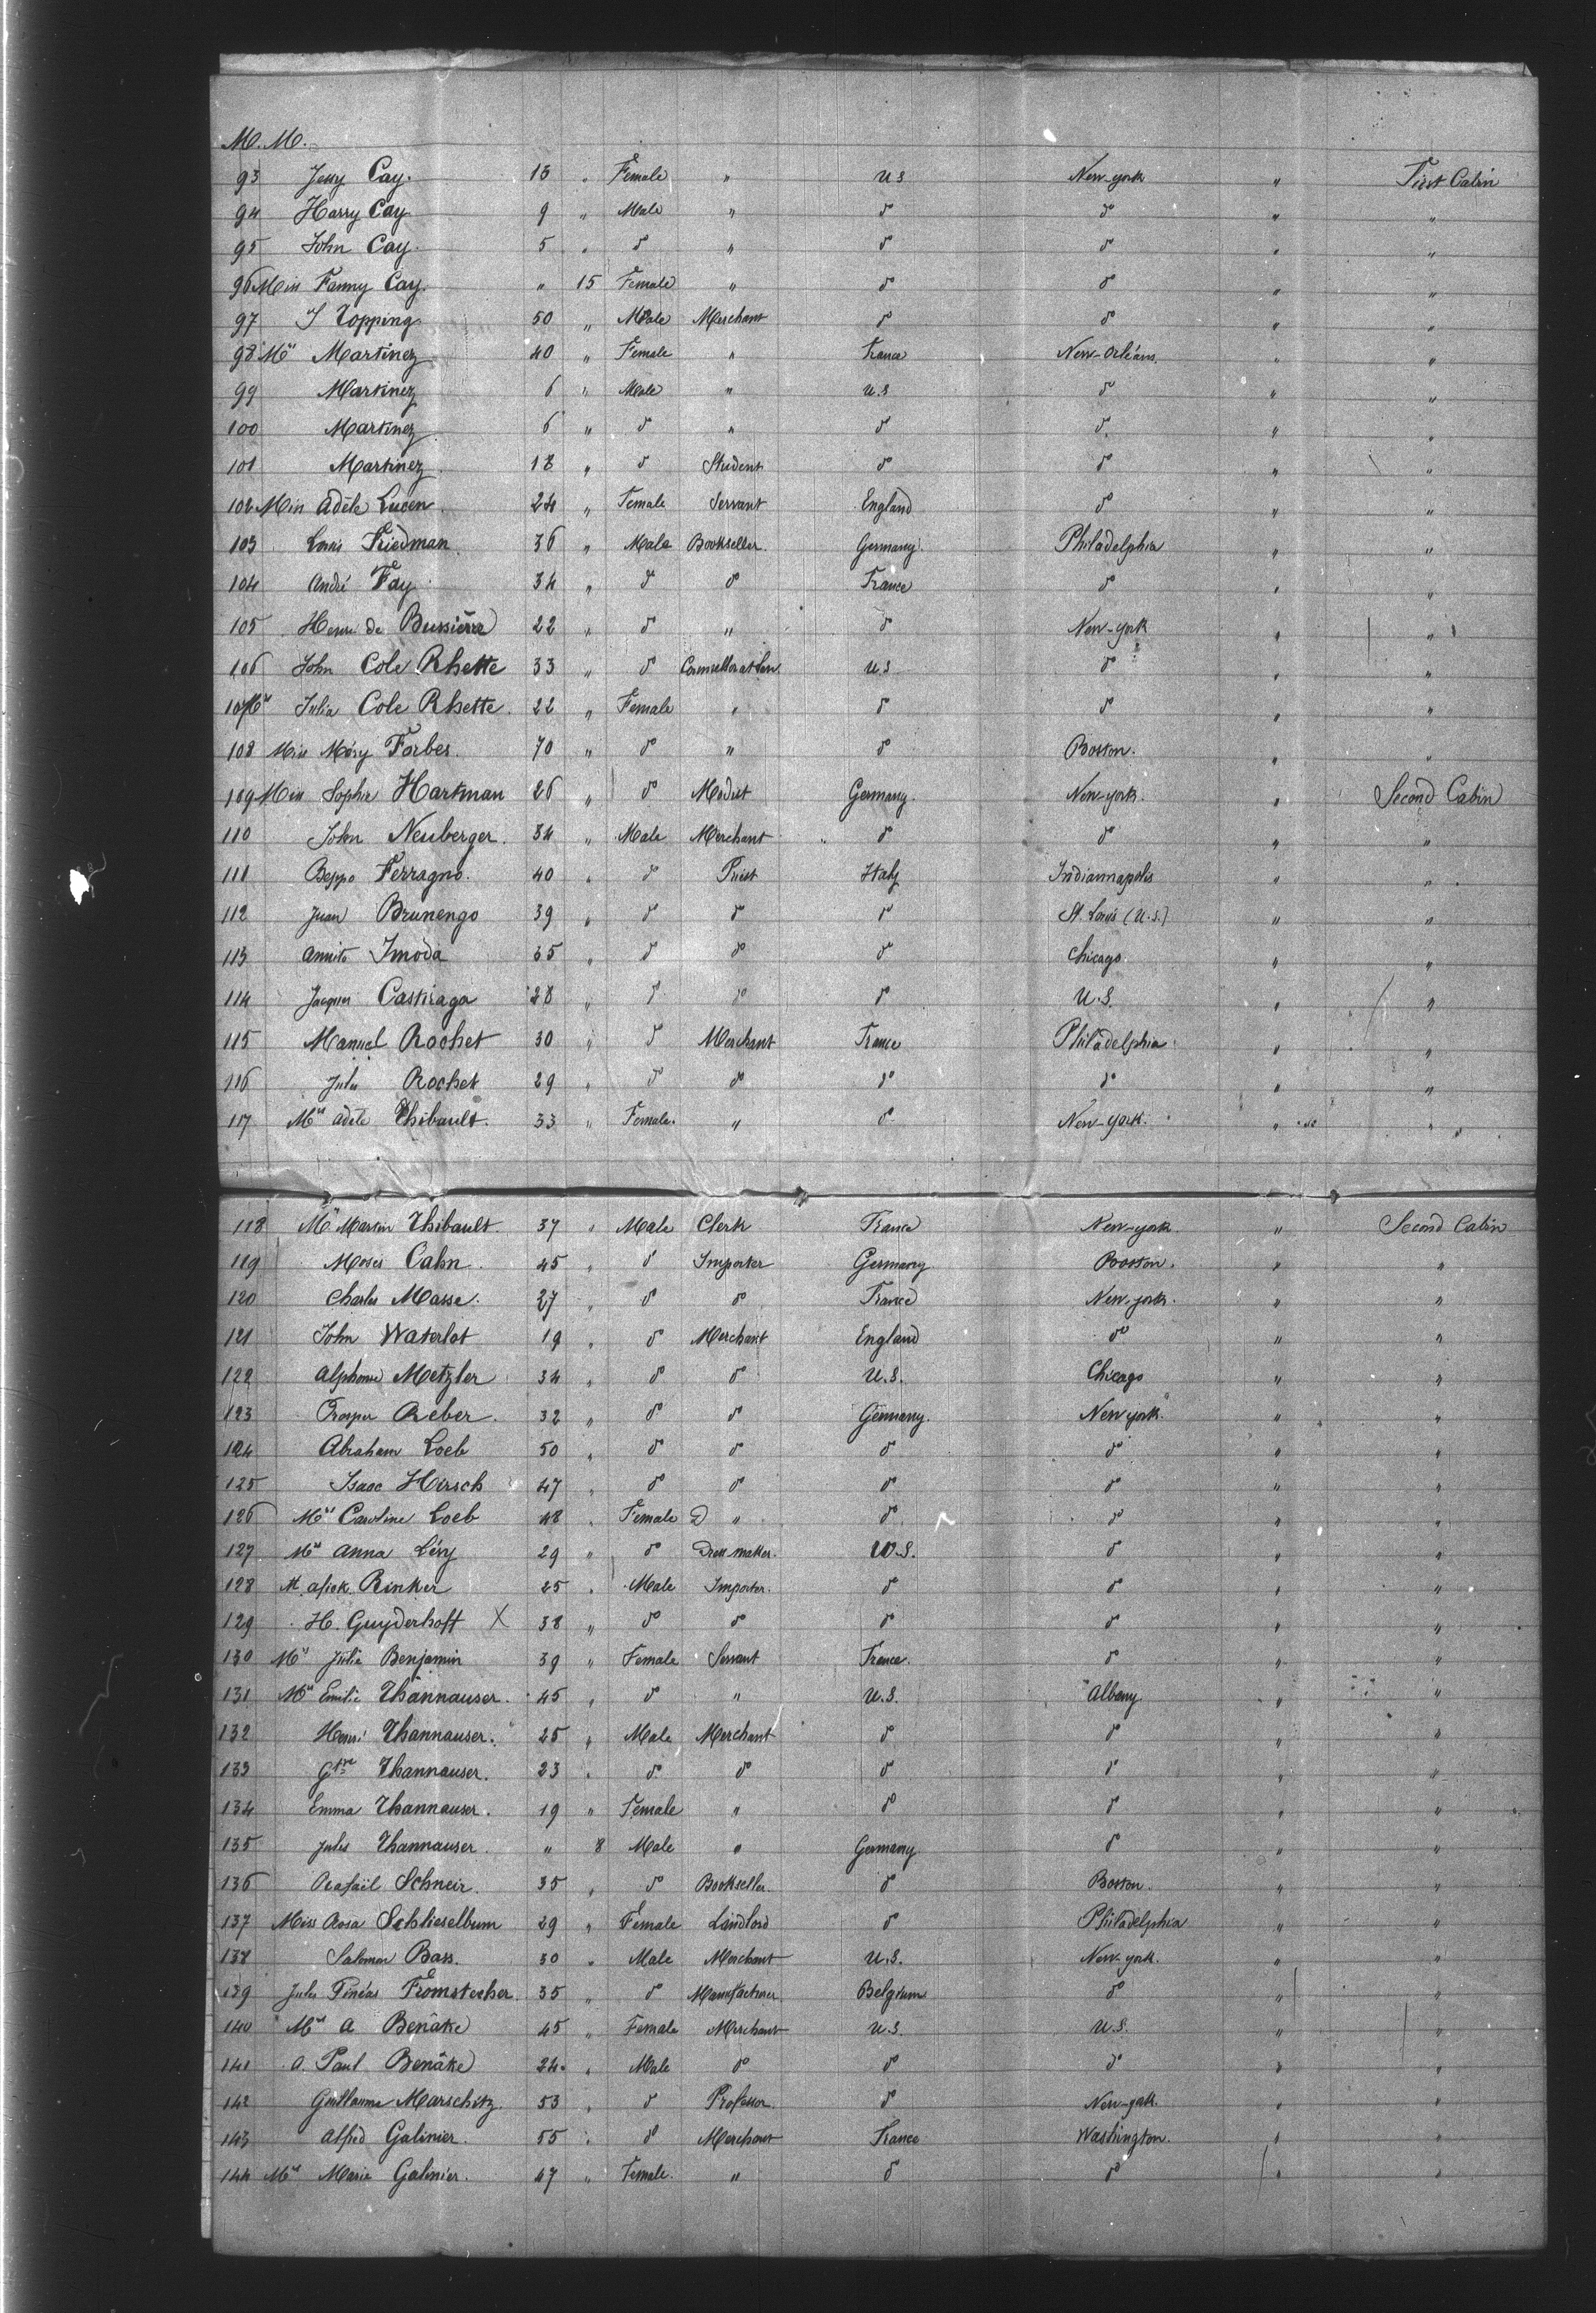 M. M.
93 Jessy Cay. 15 " Female " U S New-york " First Cabin
94 Harry Cay 9 " Male " do do " "
95 John Cay. 5 " do " do do " "
96 Miss Fanny Cay. " 15 Female " do do " "
97 J Topping 50 " Male Merchant do do " "
98 Mrs Martinez 40 " Female " France New-Orléans. " "
99 Martinez 6 " Male " U.S do " "
100 Martinez 6 " do " do do. " "
101 Martinez 18 " do Student do do " "
102 Miss Adèle Lucen. 24 " Female Servant England do " "
103 Louis Friedman. 36 " Male Bookseller. Germany. Philadelphia " "
104 André Fay 34 " do do France do " "
105 Henri de Bussière 22 " do " do New-york " "
106 John Cole Rhette 33 " do Counsellor at Law U.S do " "
107 Mrs Julia Cole Rhette. 22 " Female " do do " "
108 Miss Méry Forbes. 70 " do " do Boston. " "
109 Miss Sophie Hartman 26 " do Modist Germany. New-york. " Second Cabin
110 John Neuberger. 34 " Male Merchant do do " "
111 Beppo Ferragno. 40 " do Priest Italy Indiannapolis " "
112 Juan Brunengo 39 " do do do St. Louis (U.S.) " "
113 Imoda 65 " do do do Chicago. " "
114 Jacques Castiraga 28 " do do do U.S. " "
115 Manuel Rochet 30 " do Merchant France Philadelphia " "
116 Jules Rochet 29 " do do do do " "
117 Mrs Adèle Thibault. 33 " Female. " do New-york. " "
118 Mr Martin Thibault. 37 " Male Clerk France New-york. " Second Cabin
119 Moses Cahn. 45 " do Importer Germany Boston. " "
120 Charles Masse. 27 " do do France New-york. " "
121 John Waterlot 19 " do Merchant England do " "
122 Alphonse Metzler 34 " do do U.S. Chicago " "
123 Prosper Reber. 32 " do do Germany. New york. " "
124 Abraham Loeb 50 " do do do do " "
125 Isaac Hirsch 47 " do do do do " "
126 Mrs Caroline Loeb 48 " Female D " do do " "
127 Mrs Anna Lévy 29 " do Dress maker. U.S. do " "
128 M. Binker 25 " Male Importer. do do " "
129 H. Guyderhoff X 38 " do do do do " "
130 Mrs Julie Benjamin 39 " Female Servant France. do " "
131 Mrs Emilie Thannauser. 45 " do " U.S. Albany. " "
132 Henri Thannauser. 25 " Male Merchant do do " "
133 Gve Thannauser. 23 " do do do do " "
134 Emma Thannauser. 19 " Female " do do " "
135 Jules Thannauser. " 8 Male " Germany do " "
136 Rafaël Schneir. 35 " do Bookseller. do Boston. " "
137 Miss Rosa Schlieselbum 29 " Female Landlord do Philadelphia " "
138 Salomon Bass. 30 " Male Merchant U.S. New-york. " "
139 Jules Pinéas Fromstecher. 35 " do Manufacturer. Belgium do " "
140 Mrs A Benâke 45 " Female Merchant U.S. U.S. " "
141 A. Paul Benâke 24. " Male do do do " "
142 Guillaume Marschitz 53 " do Professor. do New-york. " "
143 Alfred Galinier. 55 " do Merchant France Washington. " "
144 Mrs Marie Galinier. 47 " Female. " do do " "